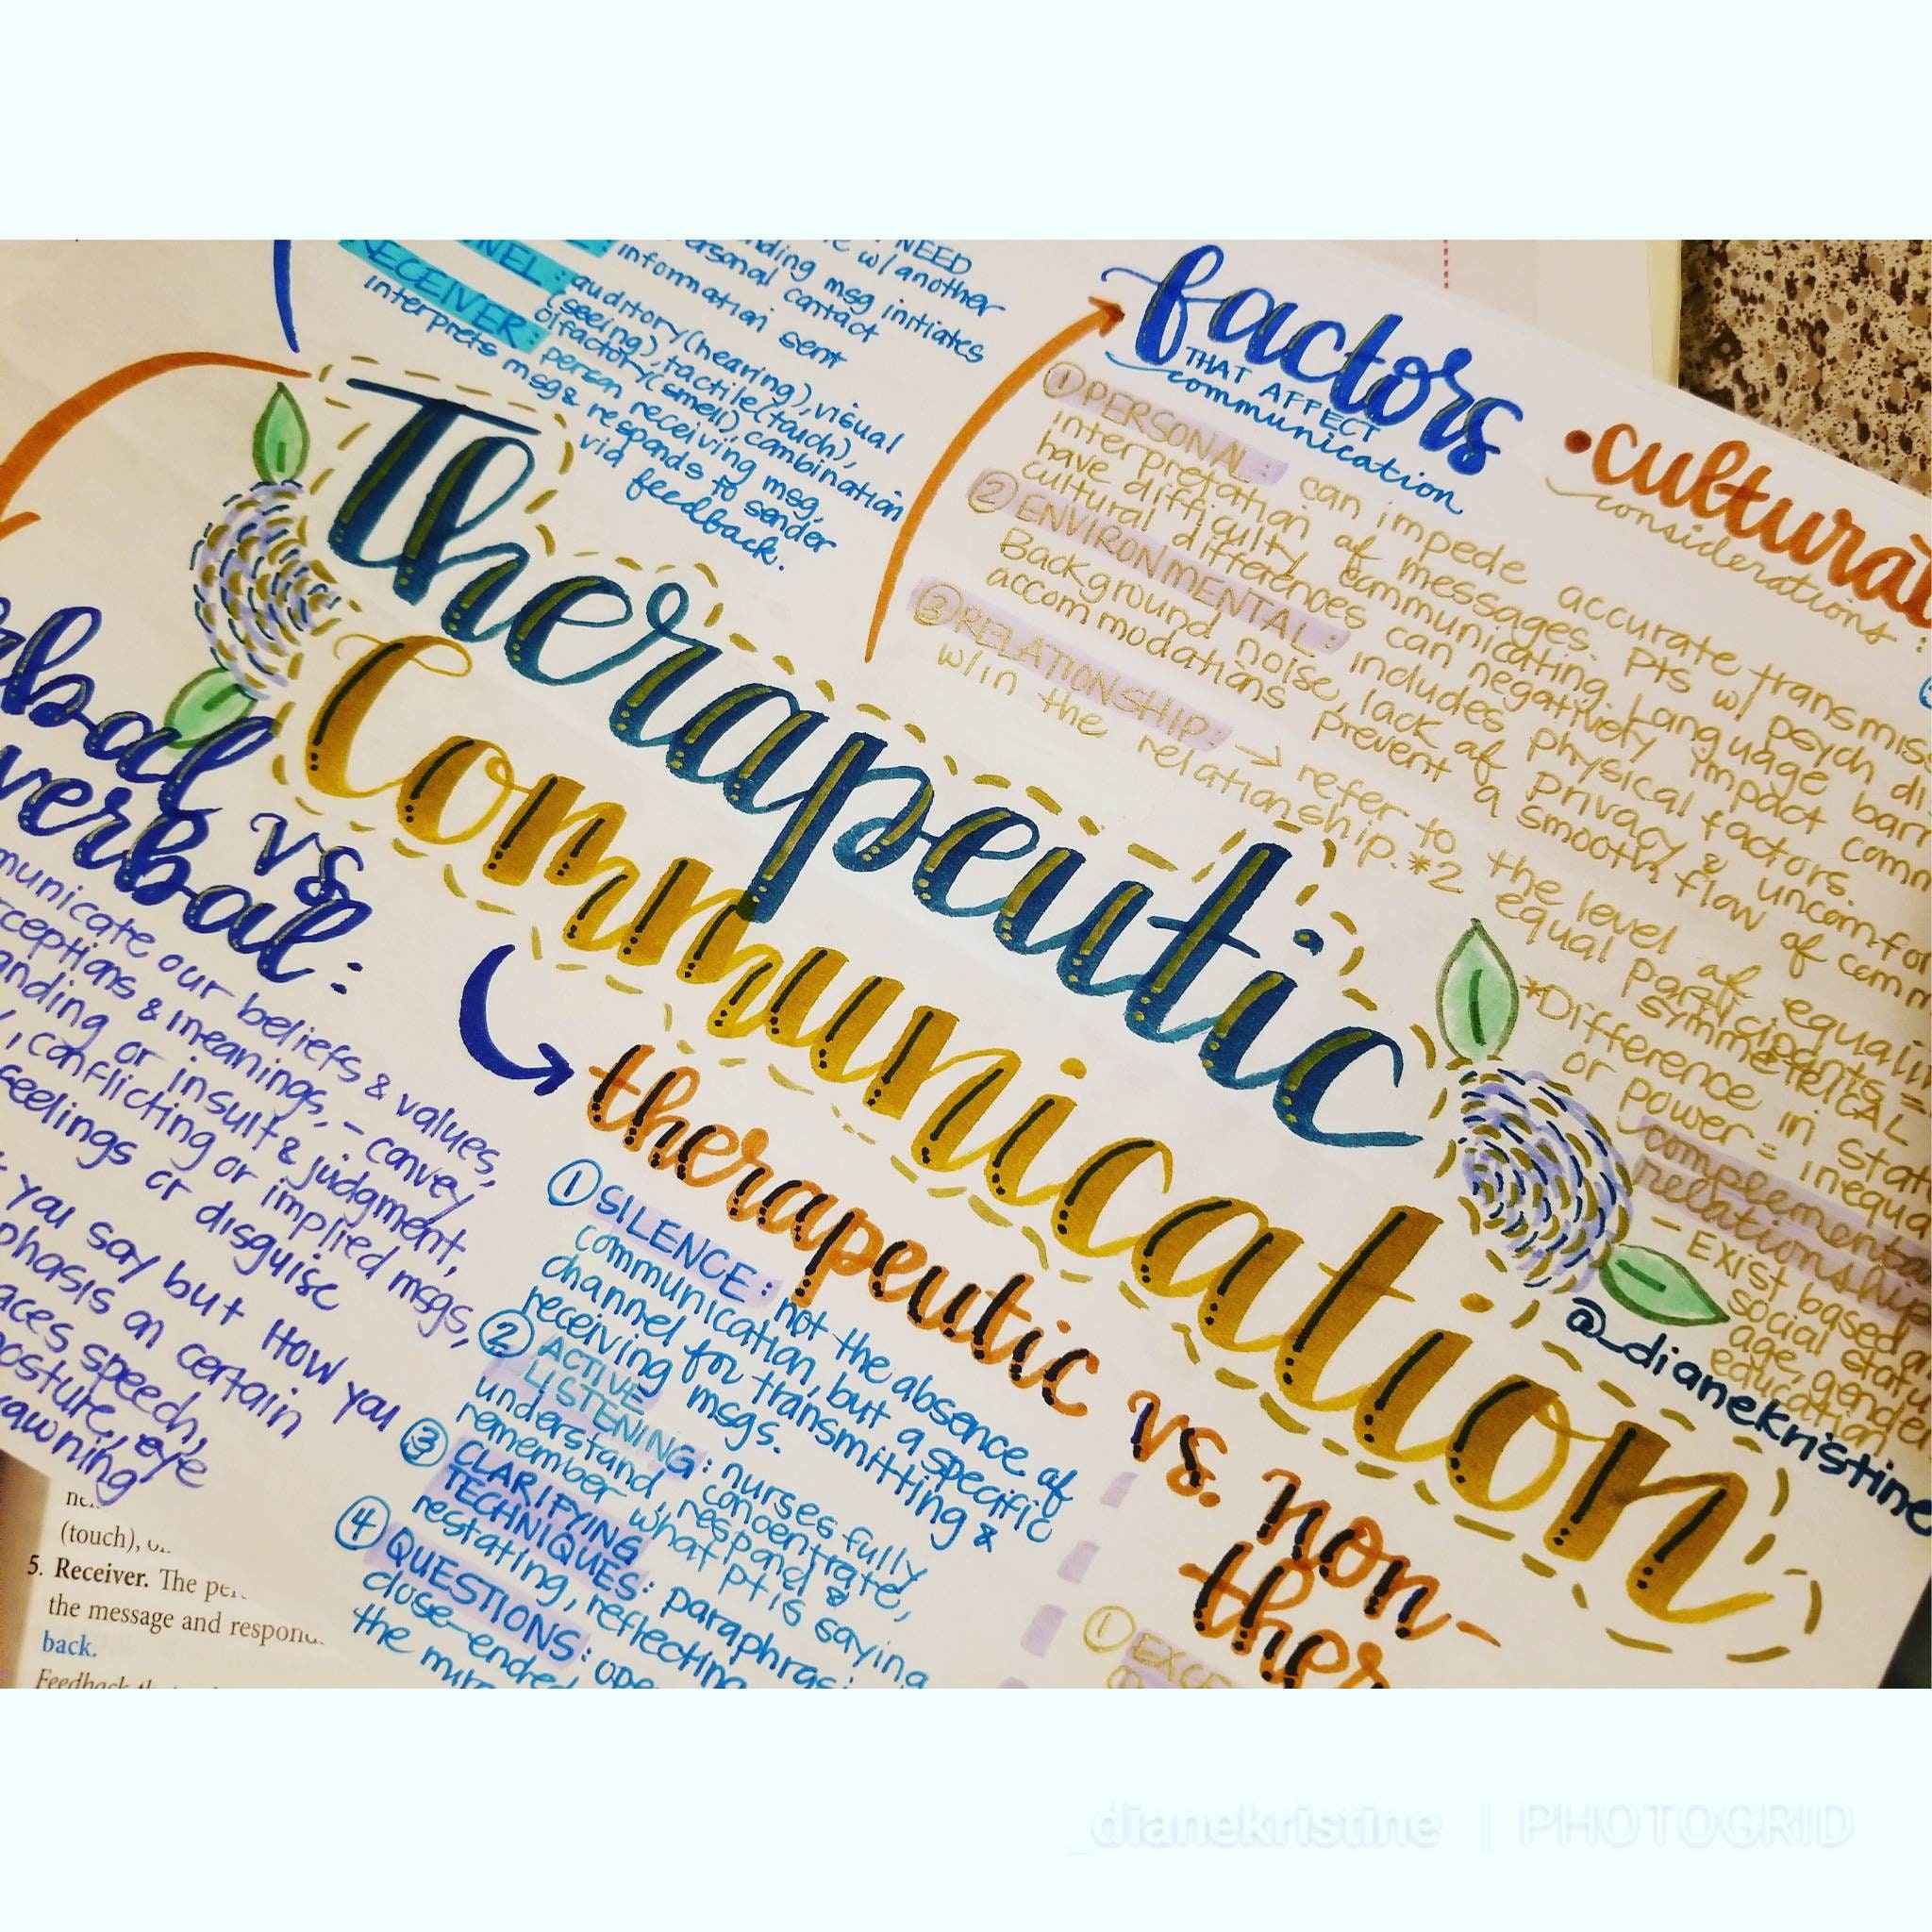 NEED
w/ another
msg initiates
personal contact
information sent
NEL: auditory (hearing), visual
(seeing), tactile (touch),
olfactory (smell), combination
RECEIVER: person receiving msg,
interprets msg & responds to sender
via feedback.
factors
THAT AFFECT
communication
① PERSONAL: can impede accurate transmiss
interpretation of messages. Pts w/ psych di
have difficulty communicating. Language barr
cultural differences can negatively impact comm
② ENVIRONMENTAL: includes physical factors.
Background noise, lack of privacy & uncomfor
accommodations prevent a smooth flow of comm
③ RELATIONSHIP: → refer to the level of equali
w/in the relationship. *2 equal participants =
SYMMETRICAL
*Difference in stat
or power = inequa
complementa
relationship
- Exist based
social statu
age, gender
education
•cultural
considerations:
Therapeutic
Communication
@_dianekristine
rbal vs
verbal:
municate our beliefs & values,
rceptions & meanings, - convey
anding or insult & judgment,
, conflicting or implied msgs,
feelings or disguise
you say but How you
phasis on certain
aces speech,
posture, eye
yawning
therapeutic vs. non-
ther
① SILENCE: not the absence of
communication, but a specific
channel for transmitting &
receiving msgs.
② ACTIVE
LISTENING: nurses fully
understand, concentrate,
respond &
remember what pt is saying
③ CLARIFYING
TECHNIQUES: paraphrasi
restating, reflecting
④ QUESTIONS: ope
close-ended
the
① EXCE
(touch),
5. Receiver. The per
the message and respon
back.
Feedback
_dianekristine | PHOTOGRID